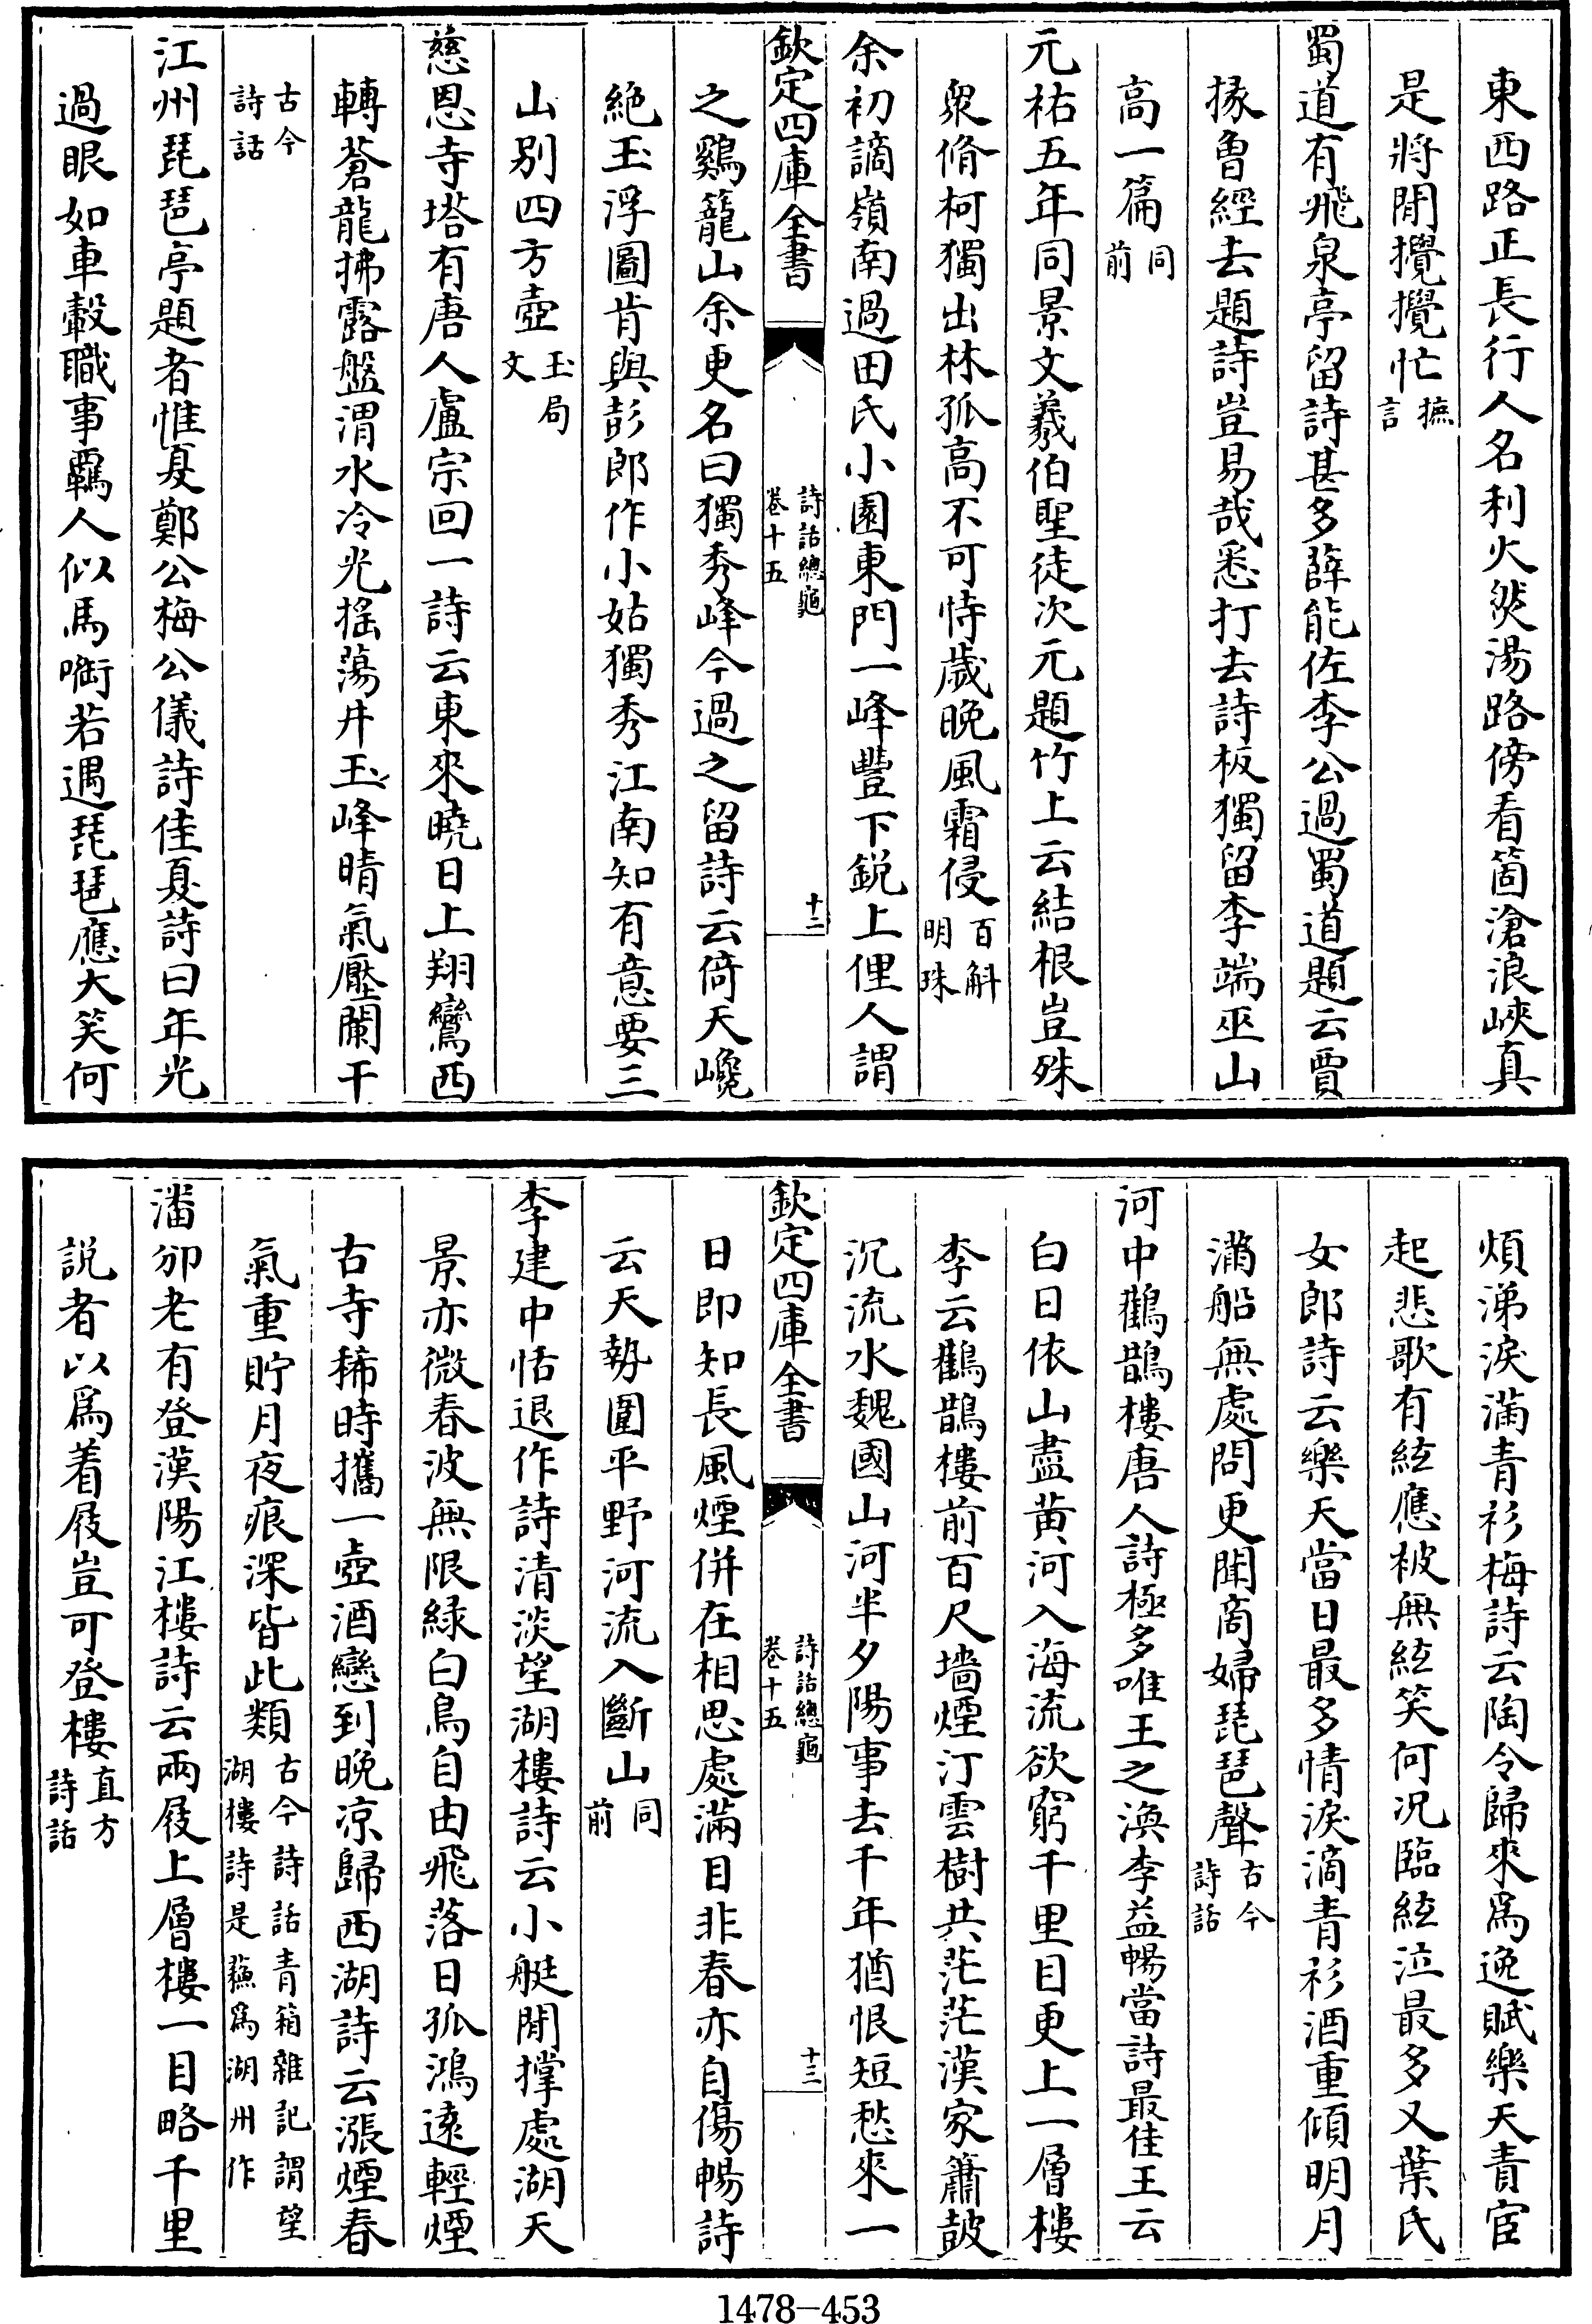 東西路正長行人名利火然湯路傍看箇滄浪峽真
是將閒攪攪忙摭言
蜀道有飛泉亭留詩甚多薛能佐李公過蜀道題云賈
掾曾經去題詩豈易哉悉打去詩板獨留李端巫山
高一篇同前
元祐五年同景文羲伯聖徒次元題竹上云結根豈殊
衆脩柯獨出林孤高不可恃歲晚風霜侵百斛明珠
余初謫嶺南過田氏小園東門一峰豐下銳上俚人謂
欽定四庫全書 詩話總龜 卷十五 十二
之鷄籠山余更名曰獨秀峰今過之留詩云倚天巉
絶玉浮圖肯與彭郎作小姑獨秀江南知有意要三
山别四方壺玉局文
慈恩寺塔有唐人盧宗回一詩云東來曉日上翔鸞西
轉蒼龍拂露盤渭水冷光揺蕩井玉峰晴氣壓闌干
古今詩話
江州琵琶亭題者惟夏鄭公梅公儀詩佳夏詩曰年光
過眼如車轂職事羈人似馬啣若遇琵琶應大笑何
煩涕淚滿青衫梅詩云陶令歸來爲逸賦樂天青宦
起悲歌有絃應被無絃笑何况臨絃泣最多又葉氏
女郎詩云樂天當日最多情淚滴青衫酒重傾明月
滿船無處問更聞商婦琵琶聲古今詩話
河中鸛鵲樓唐人詩極多唯王之渙李益暢當詩最佳王云
白日依山盡黄河入海流欲窮千里目更上一層樓
李云鸛鵲樓前百尺墻煙汀雲樹共茫茫漢家簫鼓
沉流水魏國山河半夕陽事去千年猶恨短愁來一
欽定四庫全書 詩話總龜 卷十五 十三
日即知長風煙併在相思處滿目非春亦自傷暢詩
云天勢圍平野河流入斷山同前
李建中恬退作詩清淡望湖樓詩云小艇閒撑處湖天
景亦微春波無限緑白鳥自由飛落日孤鴻遠輕煙
古寺稀時攜一壺酒戀到晚凉歸西湖詩云漲煙春
氣重貯月夜痕深皆此類古今詩話青箱雜記謂望湖樓詩是蘇爲湖州作
潘邠老有登漢陽江樓詩云兩屐上層樓一目略千里
説者以爲着屐豈可登樓直方詩話
1478-453